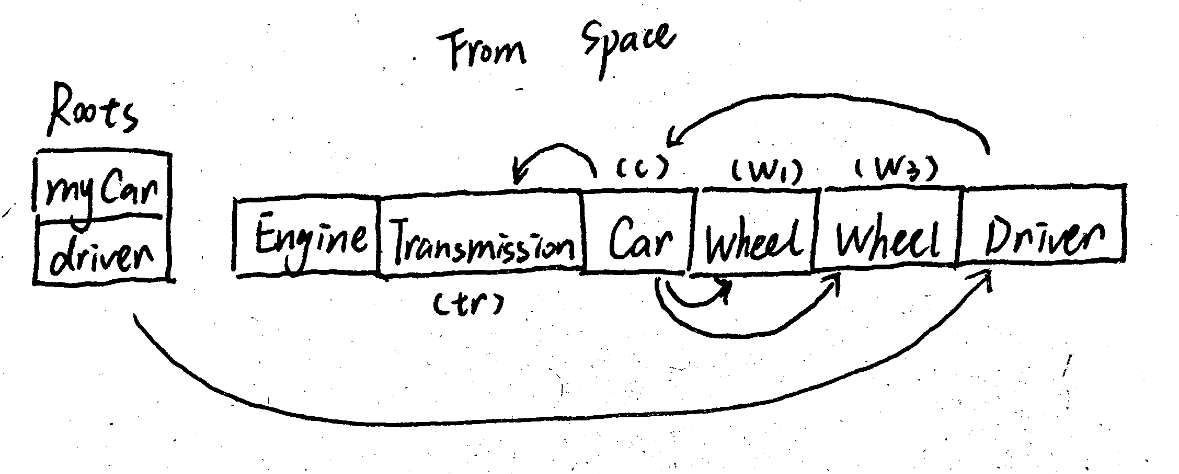 From Space
Roots
myCar
driver
(c) (W1) (W3)
Engine Transmission Car Wheel Wheel Driver
(tr)